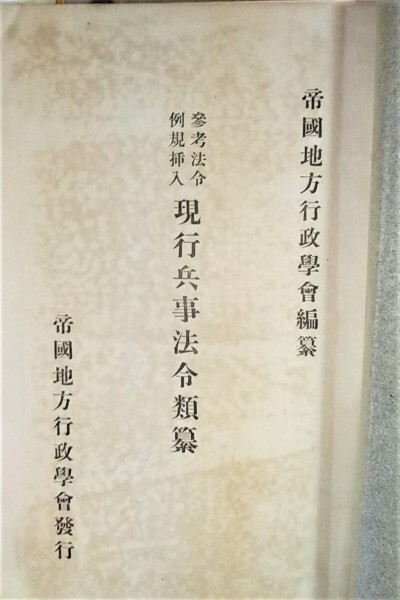 帝國地方行政學會編纂
參考法令
例規挿入
現行兵事法令類纂
帝國地方行政學會發行